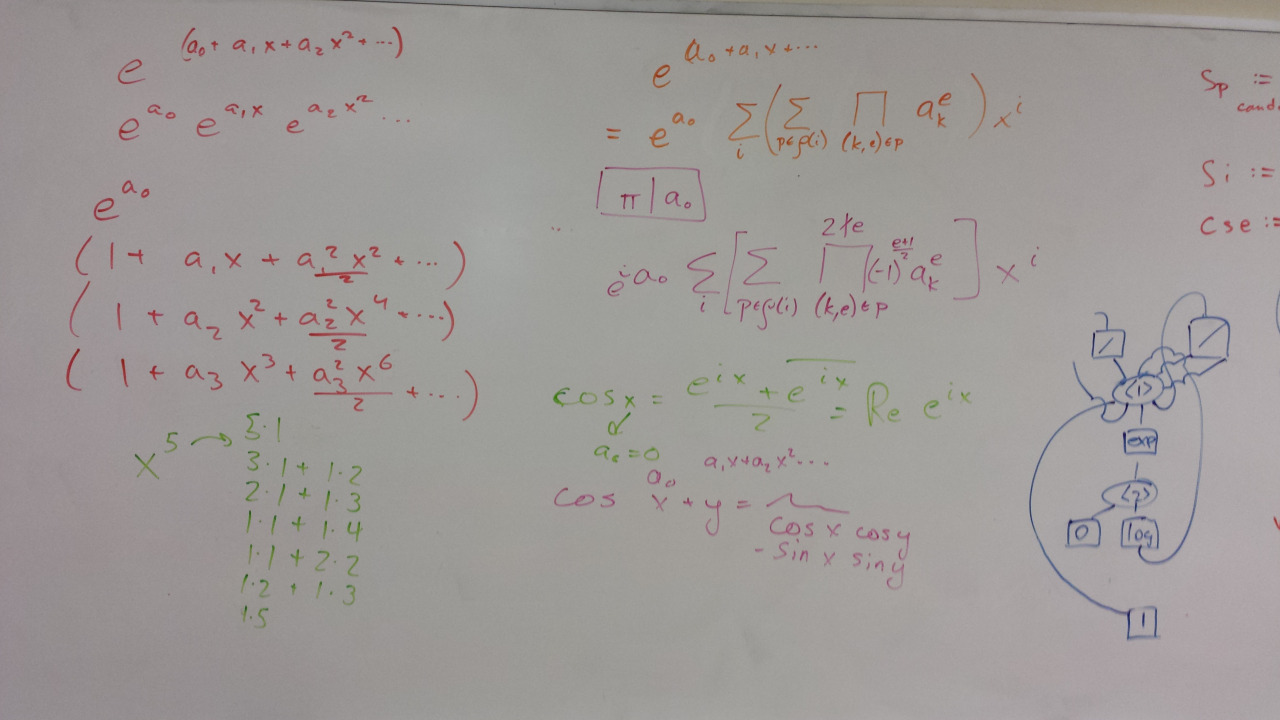 e^(a₀ + a₁x + a₂x² + ...)
e^a₀ e^a₁x e^a₂x² ...
e^a₀
(1 + a₁x + a₁²x²/2 + ...)
(1 + a₂x² + a₂²x⁴/2 + ...)
(1 + a₃x³ + a₃²x⁶/2 + ...)
x⁵ → 5·1
3·1 + 1·2
2·1 + 1·3
1·1 + 1·4
1·1 + 2·2
1·2 + 1·3
1·5
e^(a₀ + a₁x + ...)
= e^a₀ Σ_i (Σ_{p∈℘(i)} Π_{(k,e)∈p} a_k^e) x^i
π | a₀
Σ_i [Σ_{p∈℘(i)} Π_{(k,e)∈p}^{2∤e} (-1)^{(e+1)/2} a_k^e] x^i
cos x = (e^ix + e^ix)/2 = Re e^ix
a₀=0
a₀ a₁x+a₂x²...
cos x + y =
cos x cos y
- sin x sin y
Sp :=
cand
Si :=
Cse :=
/ /
<1>
exp
<2>
0 log
1